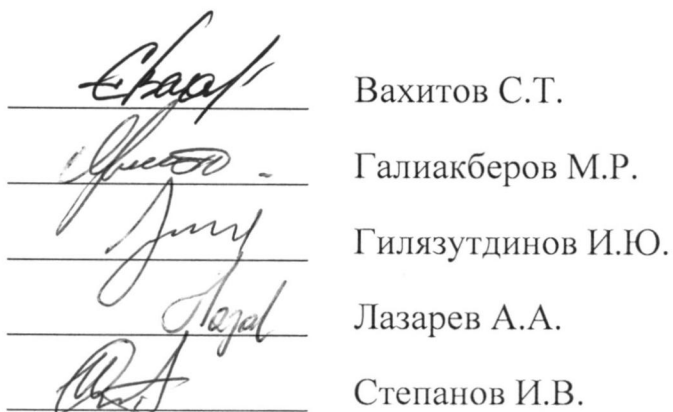 Вахитов С.Т.
Галиакберов М.Р.
Гилязутдинов И.Ю.
Лазарев А.А.
Степанов И.В.